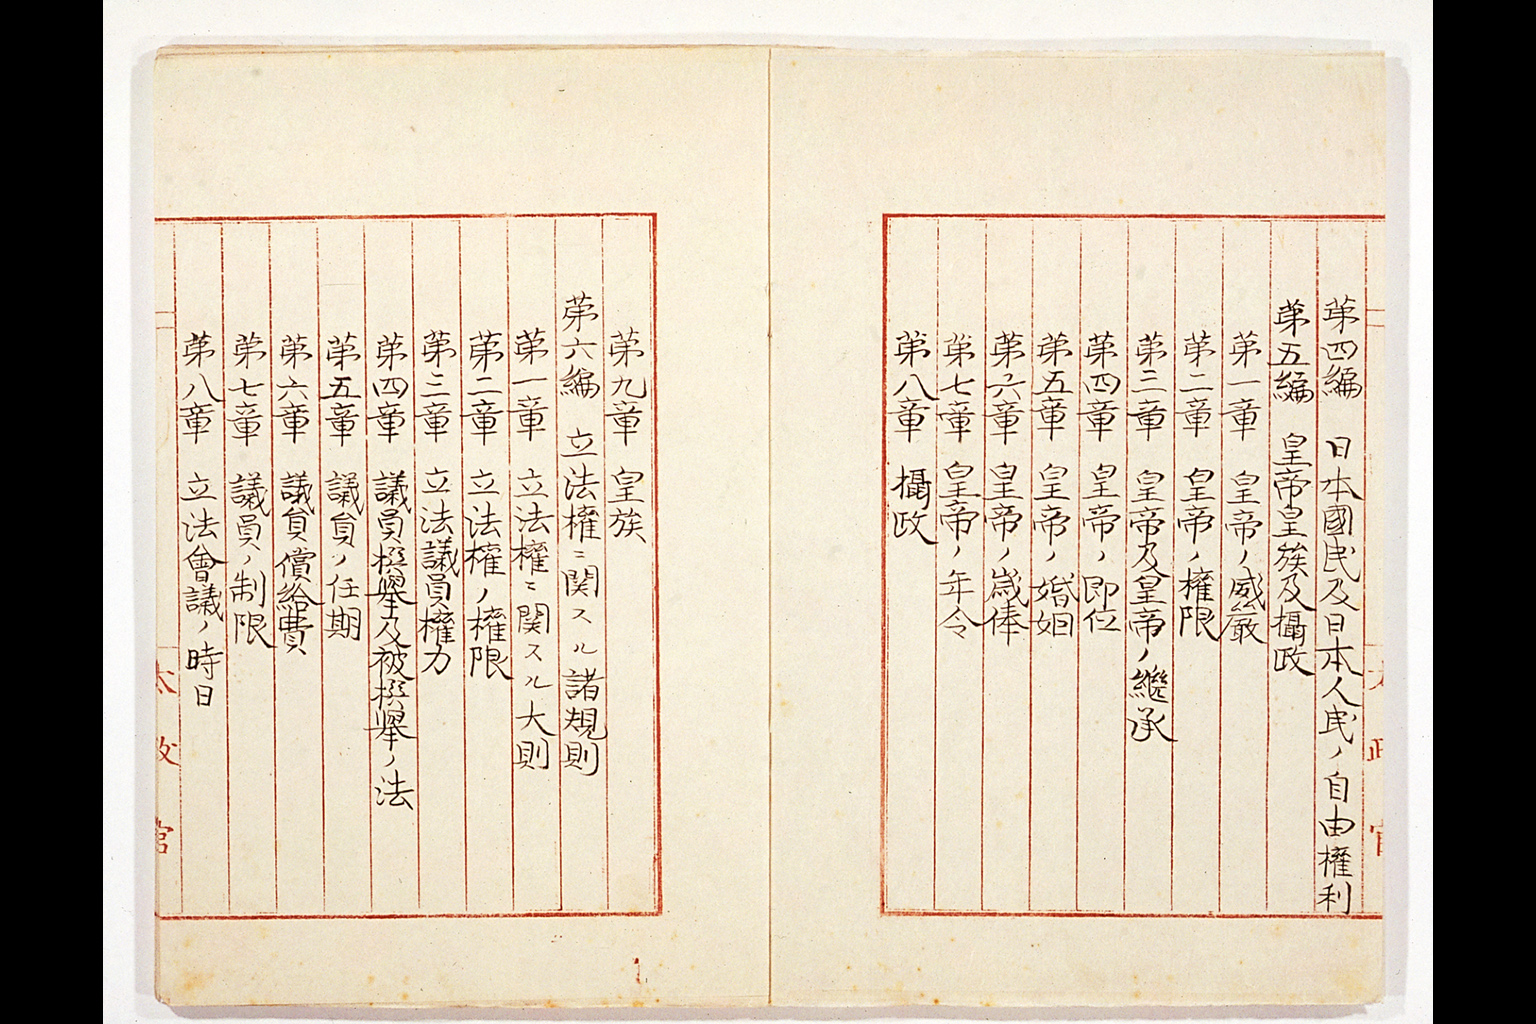 第四編 日本國民及日本人民ノ自由權利
第五編 皇帝皇族及攝政
第一章 皇帝ノ威嚴
第二章 皇帝ノ權限
第三章 皇帝及皇帝ノ繼承
第四章 皇帝ノ即位
第五章 皇帝ノ婚姻
第六章 皇帝ノ歳俸
第七章 皇帝ノ年令
第八章 攝政
第九章 皇族
第六編 立法權ニ関スル諸規則
第一章 立法權ニ関スル大則
第二章 立法權ノ權限
第三章 立法議員權力
第四章 議員撰舉及被撰舉ノ法
第五章 議員ノ任期
第六章 議員償給費
第七章 議員ノ制限
第八章 立法會議ノ時日
太政官